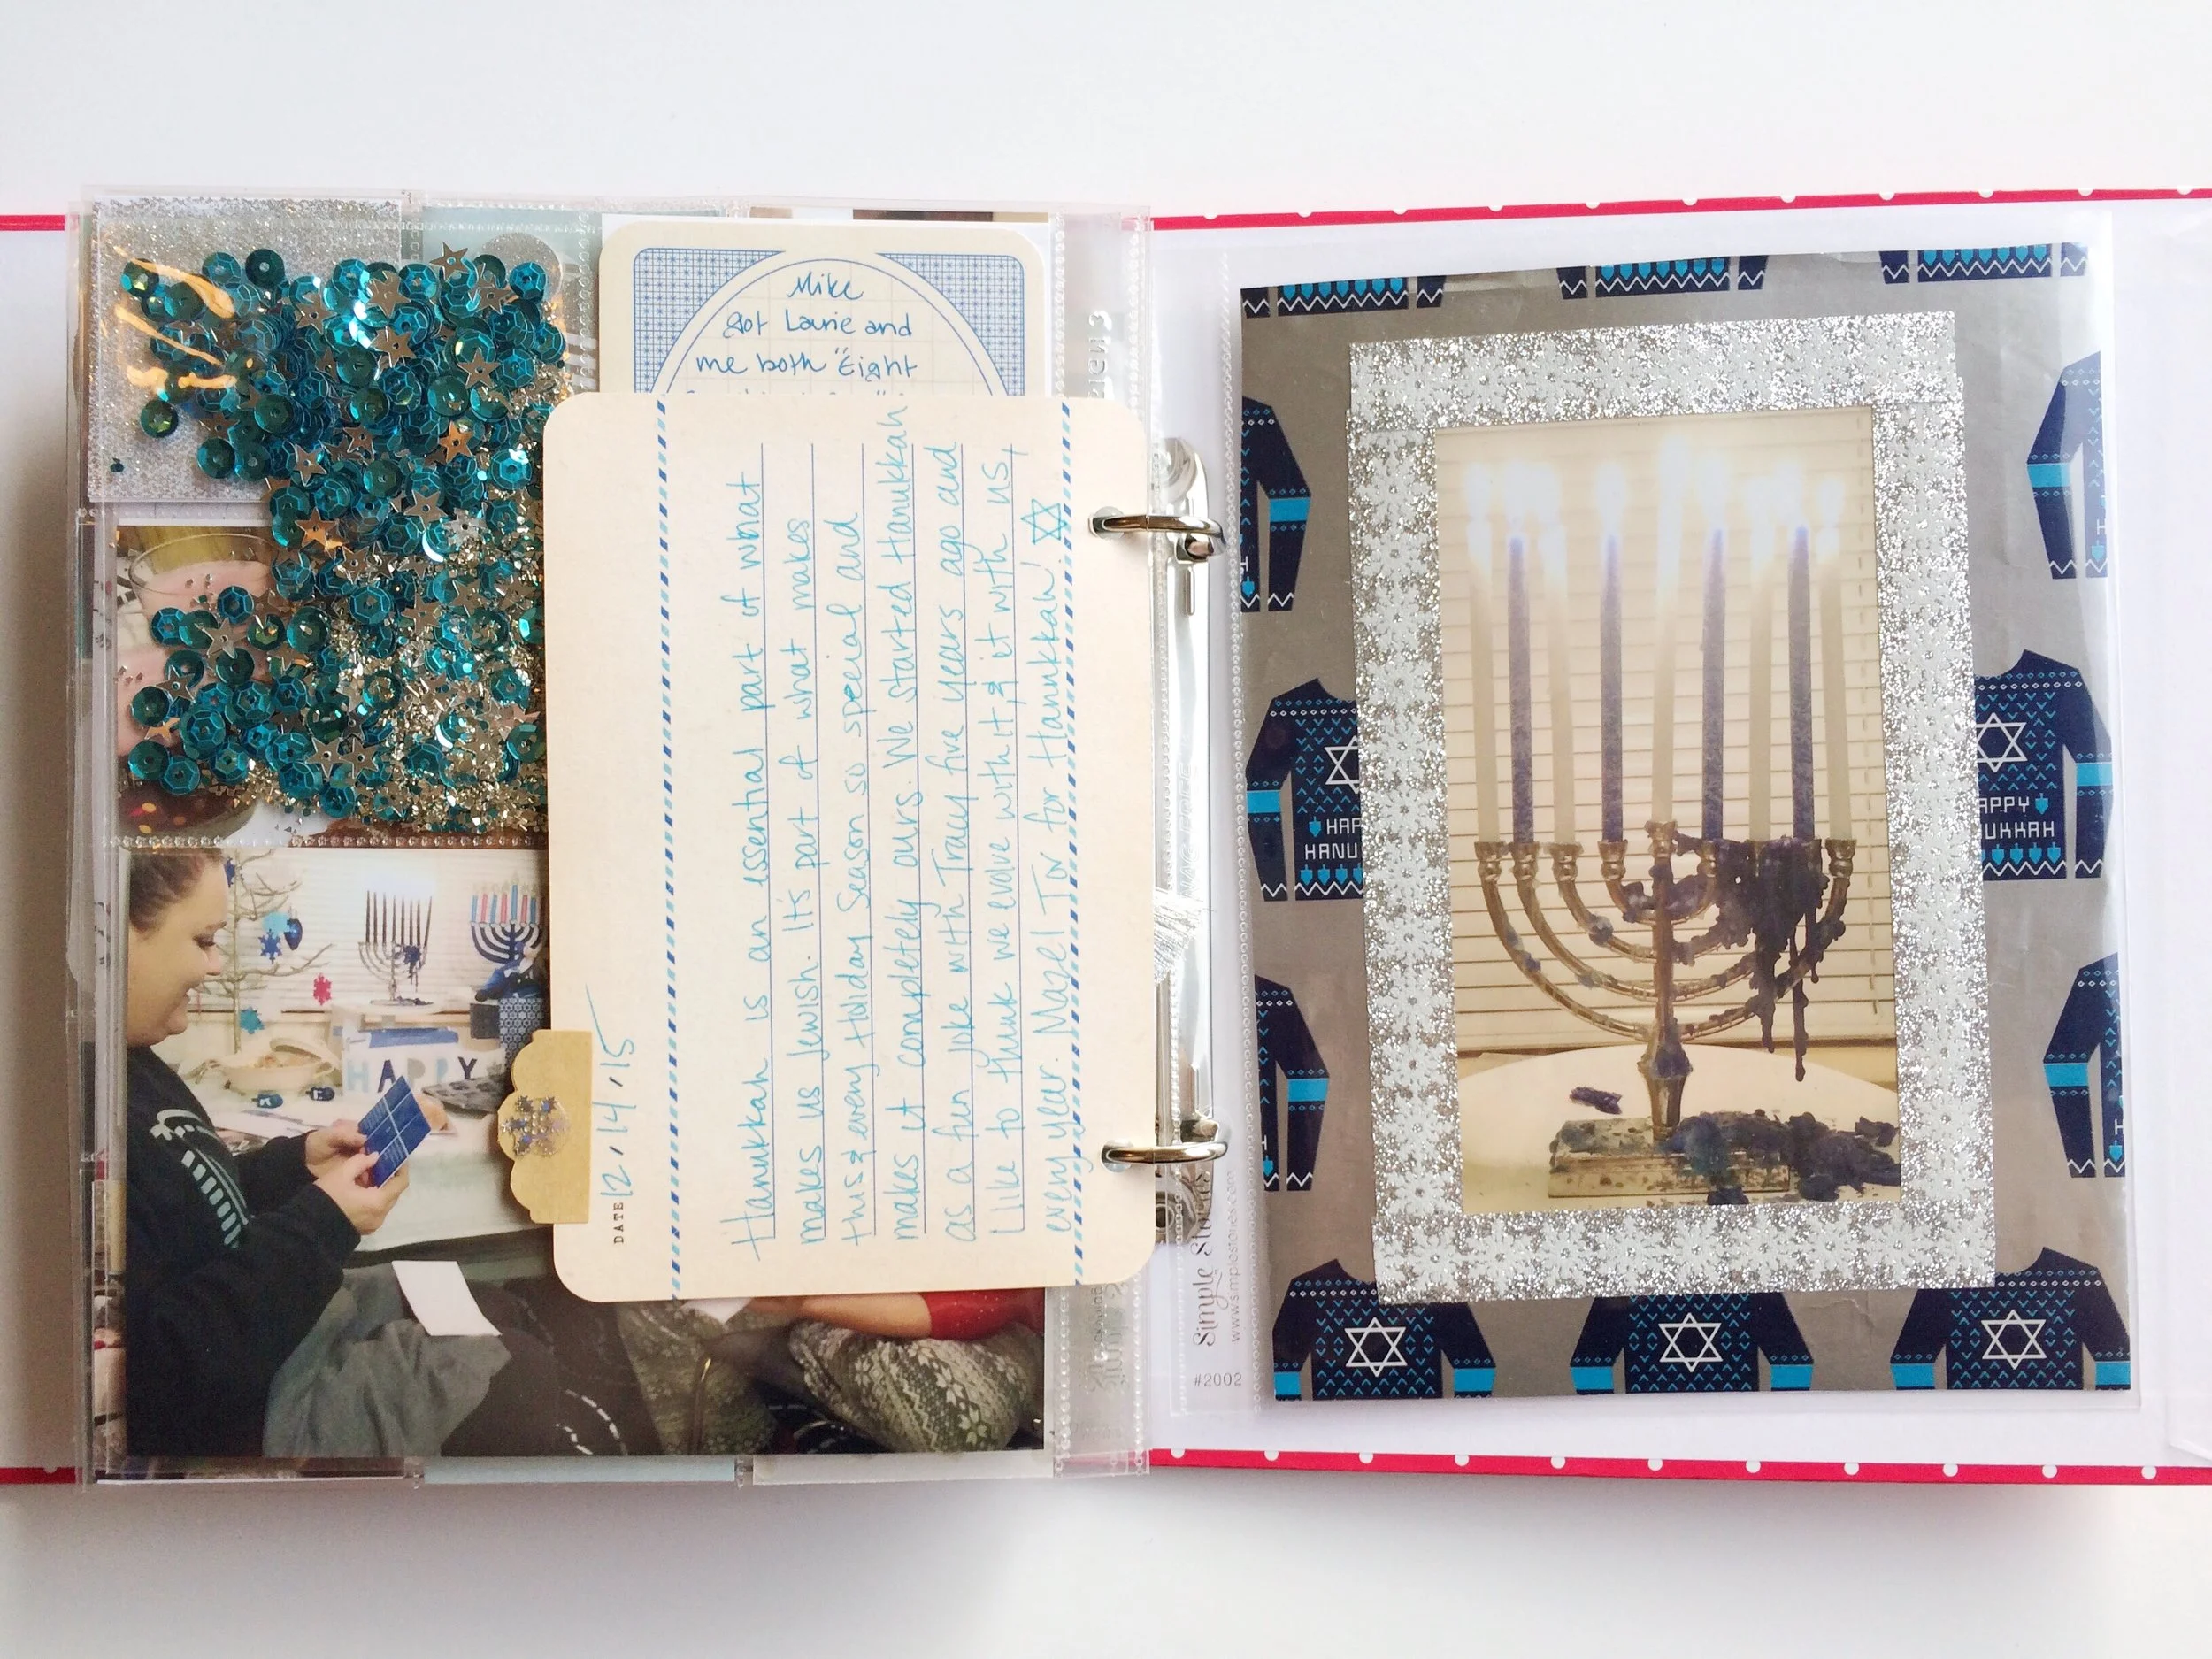 Mike
got Laurie and
me both "Eight
DATE 12/14/15
Hanukkah is an essential part of what
makes us Jewish. It's part of what makes
this & every Holiday Season so special and
makes it completely ours. We started Hanukkah
as a fun joke with Tracy five years ago and
I like to think we evolve with it, & it with us,
every year. Mazel Tov for Hanukkah!
HAPPY
Simple Stories
www.simplestories.com
#2002
HAP
HANU
APPY
UKKAH